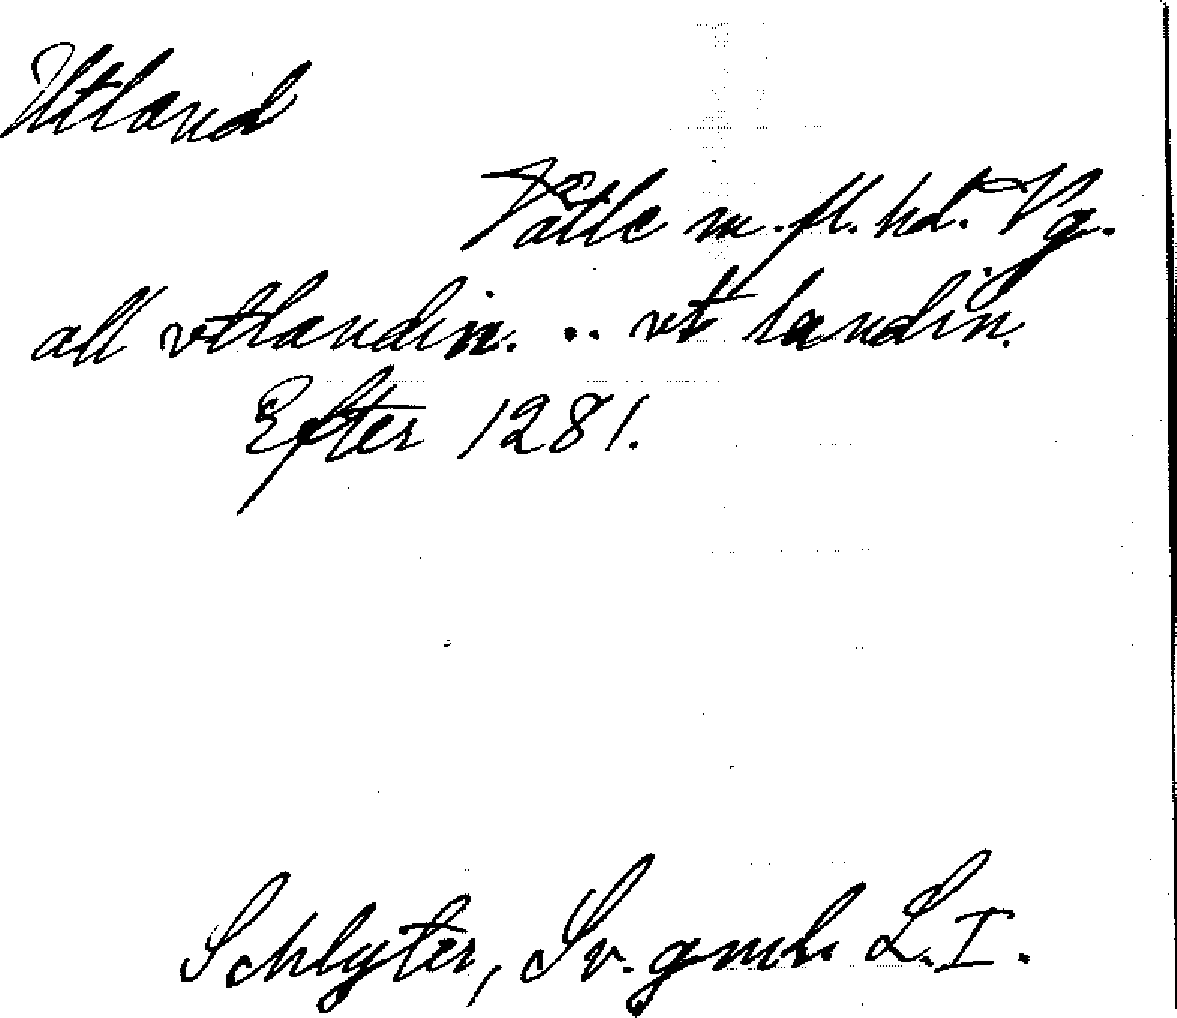 Utland
Vätle m. fl. hd. Vg.
all vtlandin. .. vt landin.
Efter 1281.
Schlyter, Sv. gml. L. I.